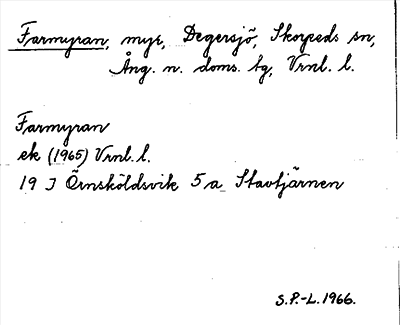 Farmyran, myr, Degersjö, Skorpeds sn,
Ång. n. doms. tg, Vrnl. l.
Farmyran
ek (1965) Vrnl. l.
19 J Örnsköldsvik 5 a Stavtjärnen
S.P.-L. 1966.